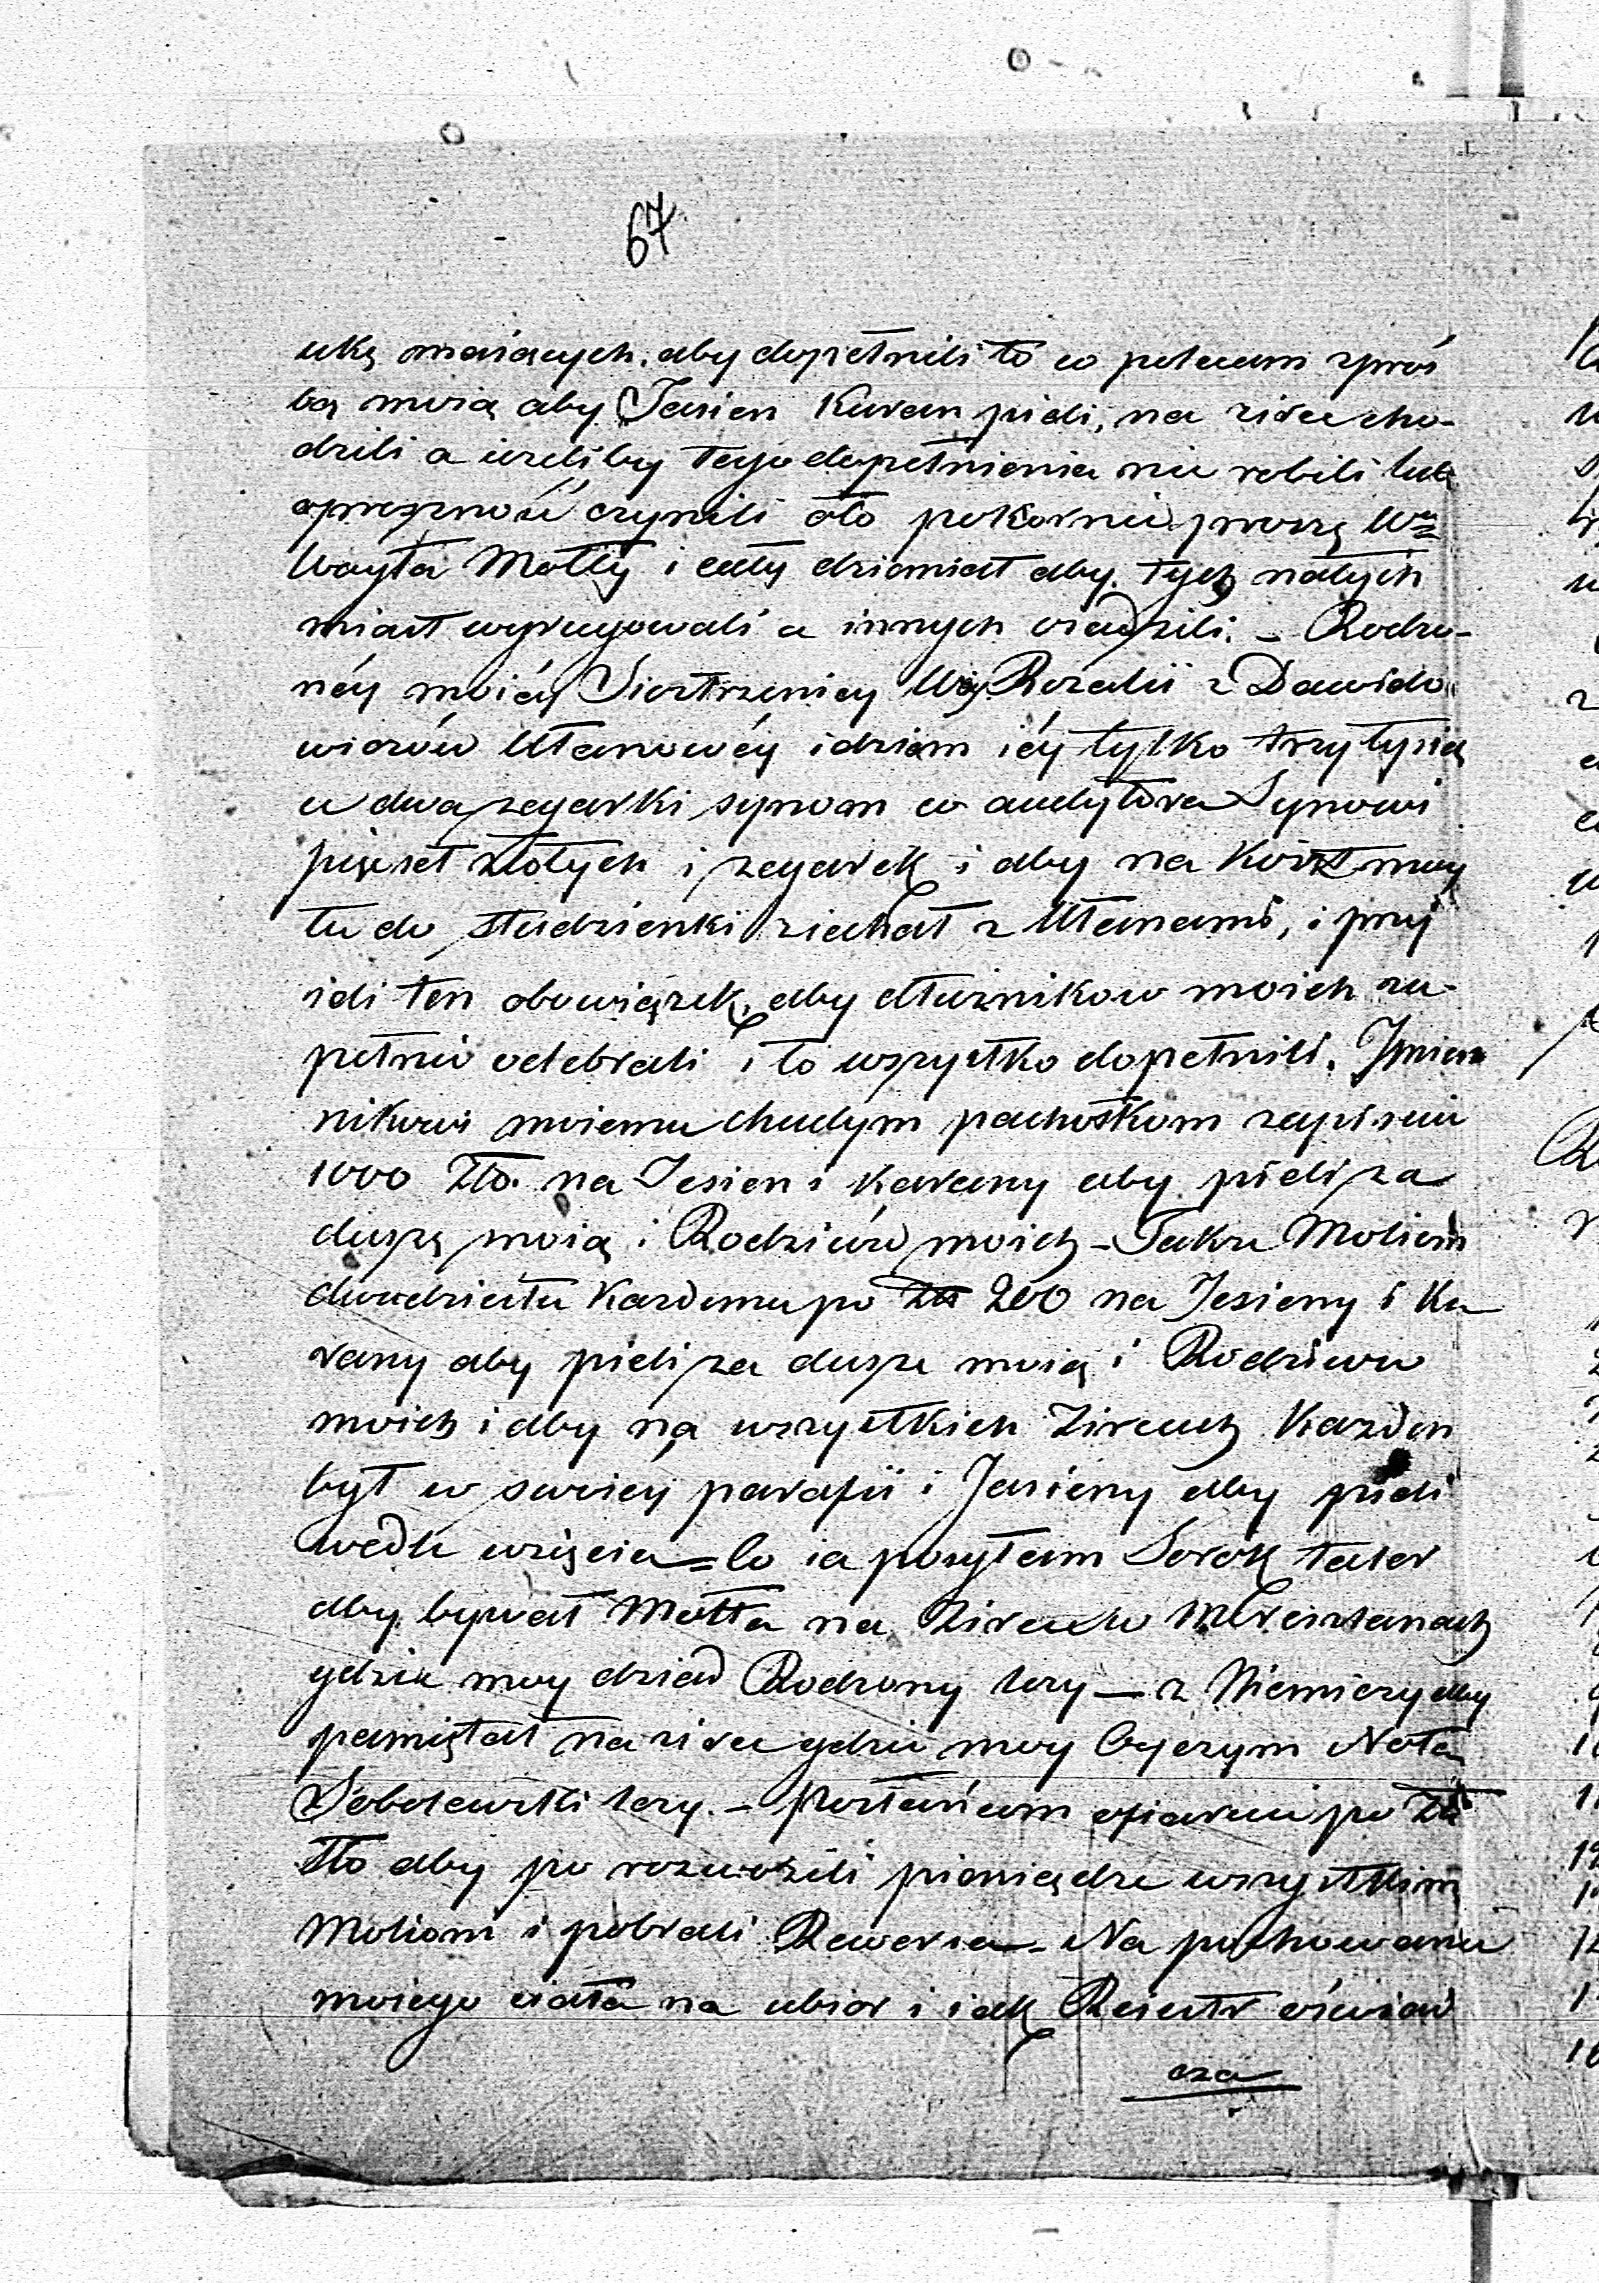 67
ukę maiących. aby dopełnili to co polecam z proś
bą moią aby Jasien Kuran pieli, na zirau cho-
dzili a iezeliby tego dopełnienia nie robili lub
oprezność czynili oto pokornie proszę Wo
Wayta Mołły i cały dziamiat aby tych natych
miast wyrugowali a innych osadzili. - Rodzo-
néy moiéy Siostrzenicy Wey Rozalii z Dawido
wiczów Ułanowéy idziem iéy tylko trzy tysią
ce dwa zegarki synom co audytora Synowi
pięset złotych i zegarek i aby na koszt moy
tu do Studzienki ziechał z Ułanami, i przy
ieli ten obowiązek, aby dłużnikow moich zu-
pełnie odebrali i to wszystko dopełnili. Jmien
nikowi moiemu chudym pachołkom zapisuie
1000 Zło. na Jesien i karany aby pieli za
duszę moią i Rodziców moich - Także Moliom
dwudziestu kazdemu po Zło 200 na Jesieny i Ku
rany aby pieli za dusze moią i Rodzicow
moich i aby na wszystkich Zireuch kazden
był w swoiéy parafii i Jasieny aby pieli
wedle wzięcia = Co ia posyłam Sorok tatar
aby bywał Mołła na Zireuch w Kreisztanach
gdzie moy dziad Rodzony lezy — z Niemiezy aby
pamiętał na zireu gdzie moy Oyczym Nota
Sobolewski lezy. - Posłańcom ofiaruie po Zło
Sto aby po rozwozili pieniądze wszystkim
Moliom i pobrali Rewersa - Na pochowanie
moiego ciała na ubior i iak Reiestr oświad
cza